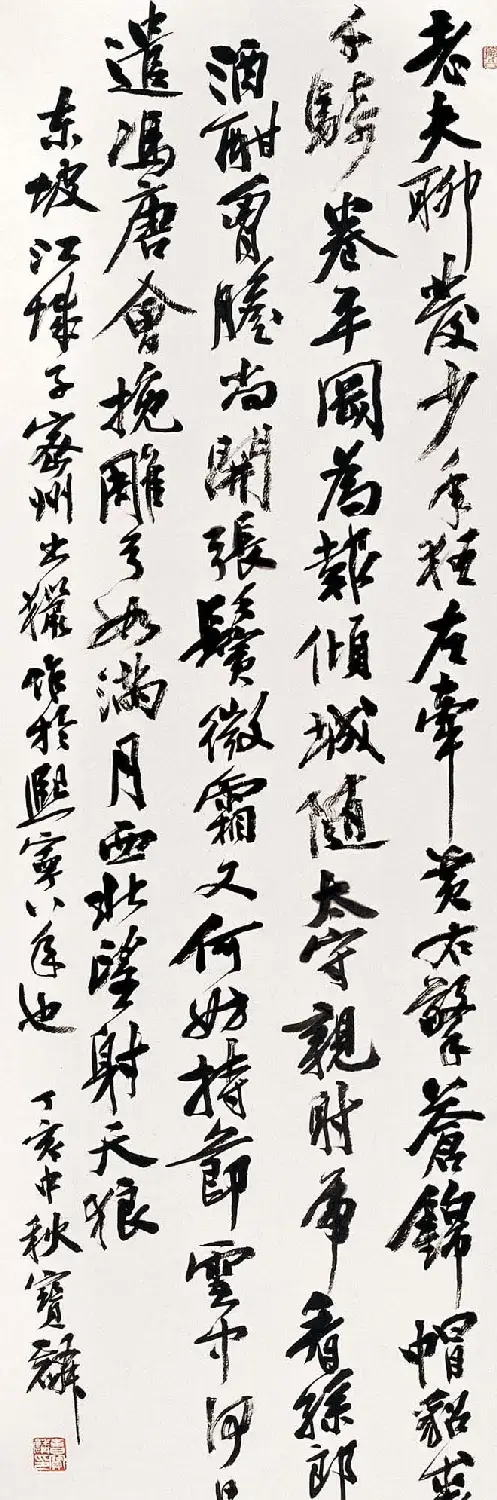 老夫聊發少年狂左牽黃右擎蒼錦帽貂裘
千騎卷平岡為報傾城隨太守親射虎看孫郎
酒酣胷膽尚開張鬢微霜又何妨持節雲中何日
遣馮唐會挽雕弓如滿月西北望射天狼
东坡江城子密州出獵作於熙寧八年也 丁亥中秋寶